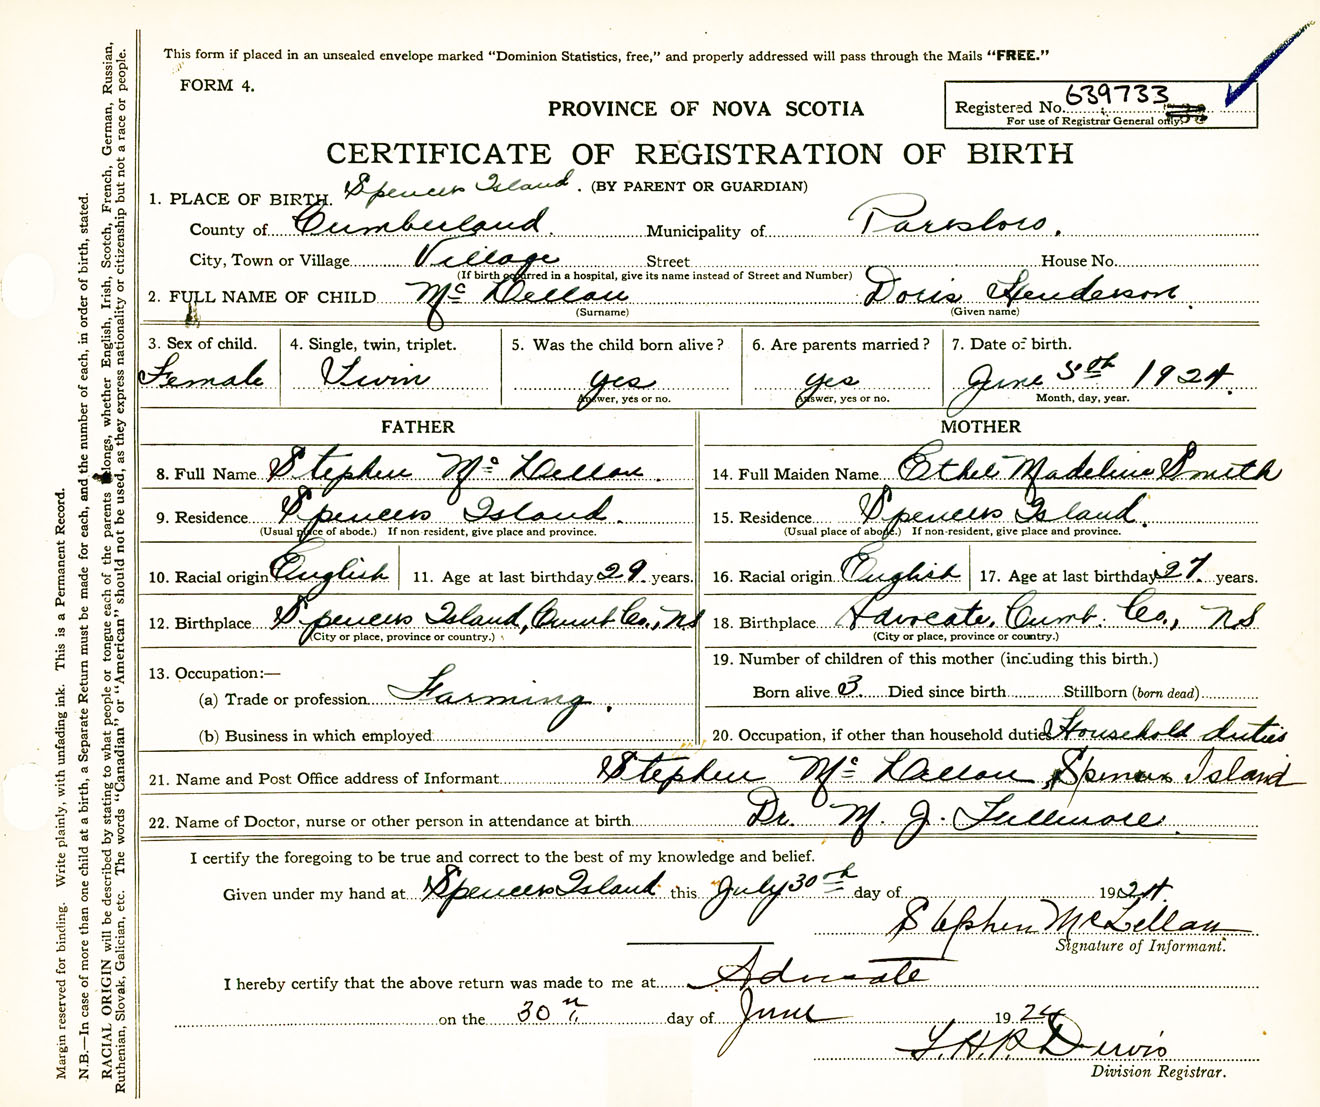 This form if placed in an unsealed envelope marked "Dominion Statistics, free," and properly addressed will pass through the Mails "FREE."
FORM 4.
Registered No. 639733
For use of Registrar General only.
PROVINCE OF NOVA SCOTIA
CERTIFICATE OF REGISTRATION OF BIRTH
1. PLACE OF BIRTH. Spencers Island. (BY PARENT OR GUARDIAN)
County of Cumberland. Municipality of Parrsboro.
City, Town or Village Village Street House No.
(If birth occurred in a hospital, give its name instead of Street and Number)
2. FULL NAME OF CHILD Mc Lellan Doris Henderson.
(Surname) (Given name)
3. Sex of child. 4. Single, twin, triplet. 5. Was the child born alive? 6. Are parents married? 7. Date of birth.
Female Twin yes yes June 5th 1924.
Answer, yes or no. Answer, yes or no. Month, day, year.
FATHER MOTHER
8. Full Name Stephen Mc Lellan. 14. Full Maiden Name Ethel Madeline Smith
9. Residence Spencers Island. 15. Residence Spencers Island.
(Usual place of abode.) If non-resident, give place and province. (Usual place of abode.) If non-resident, give place and province.
10. Racial origin English 11. Age at last birthday 29 years. 16. Racial origin English 17. Age at last birthday 27 years.
12. Birthplace Spencers Island, Cumb Co., NS 18. Birthplace Advocate, Cumb. Co., NS
(City or place, province or country.) (City or place, province or country.)
13. Occupation:— 19. Number of children of this mother (including this birth.)
(a) Trade or profession Farming. Born alive 3. Died since birth Stillborn (born dead)
(b) Business in which employed 20. Occupation, if other than household duties Household duties
21. Name and Post Office address of Informant Stephen Mc Lellan, Spencers Island
22. Name of Doctor, nurse or other person in attendance at birth Dr. M. J. Fillmore.
I certify the foregoing to be true and correct to the best of my knowledge and belief.
Given under my hand at Spencers Island this July 30th day of 1924.
Stephen McLellan
Signature of Informant.
I hereby certify that the above return was made to me at Advocate
on the 30th day of June 1924
Division Registrar.
Margin reserved for binding. Write plainly, with unfading ink. This is a Permanent Record.
N.B.—In case of more than one child at a birth, a Separate Return must be made for each, and the number of each, in order of birth, stated.
RACIAL ORIGIN will be described by stating to what people or tongue each of the parents belongs, whether English, Irish, Scotch, French, German, Russian,
Ruthenian, Slovak, Galician, etc. The words "Canadian" or "American" should not be used, as they express nationality or citizenship but not a race or people.